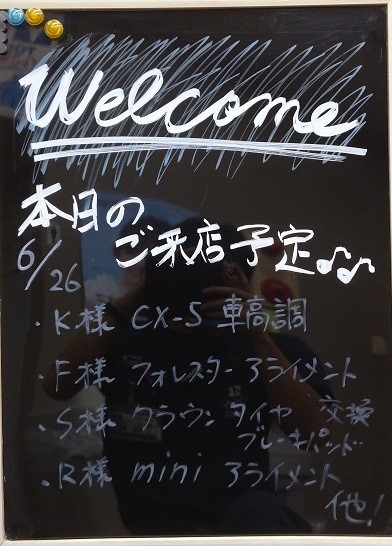 Welcome
本日の
ご来店予定♪♪
6/26
・K様 CX-5 車高調
・F様 フォレスター アライメント
・S様 クラウン タイヤ 交換
ブレーキパッド
・R様 mini アライメント
他!